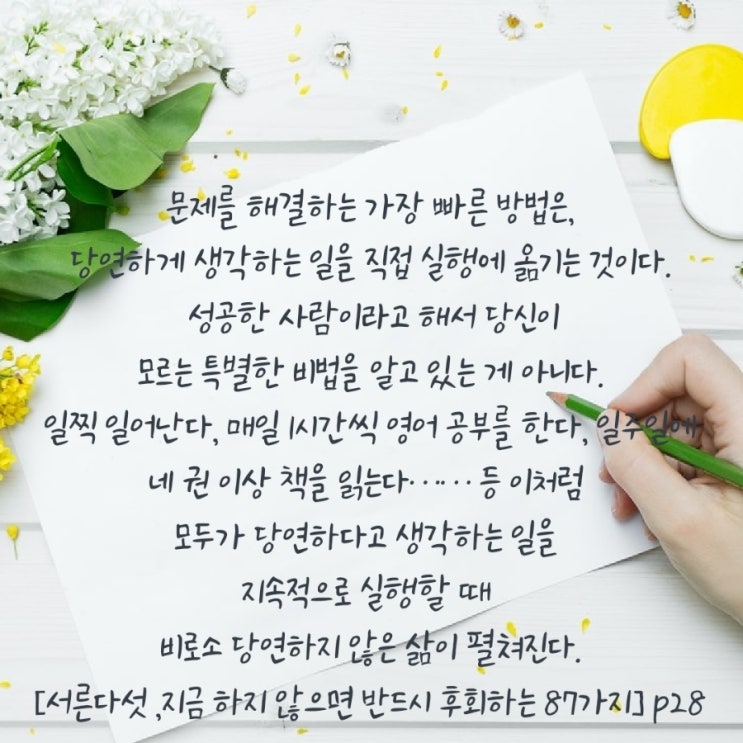 문제를 해결하는 가장 빠른 방법은,
당연하게 생각하는 일을 직접 실행에 옮기는 것이다.
성공한 사람이라고 해서 당신이
모르는 특별한 비법을 알고 있는 게 아니다.
일찍 일어난다, 매일 1시간씩 영어 공부를 한다, 일주일에
네 권 이상 책을 읽는다…… 등 이처럼
모두가 당연하다고 생각하는 일을
지속적으로 실행할 때
비로소 당연하지 않은 삶이 펼쳐진다.
[서른다섯 ,지금 하지 않으면 반드시 후회하는 87가지] p28